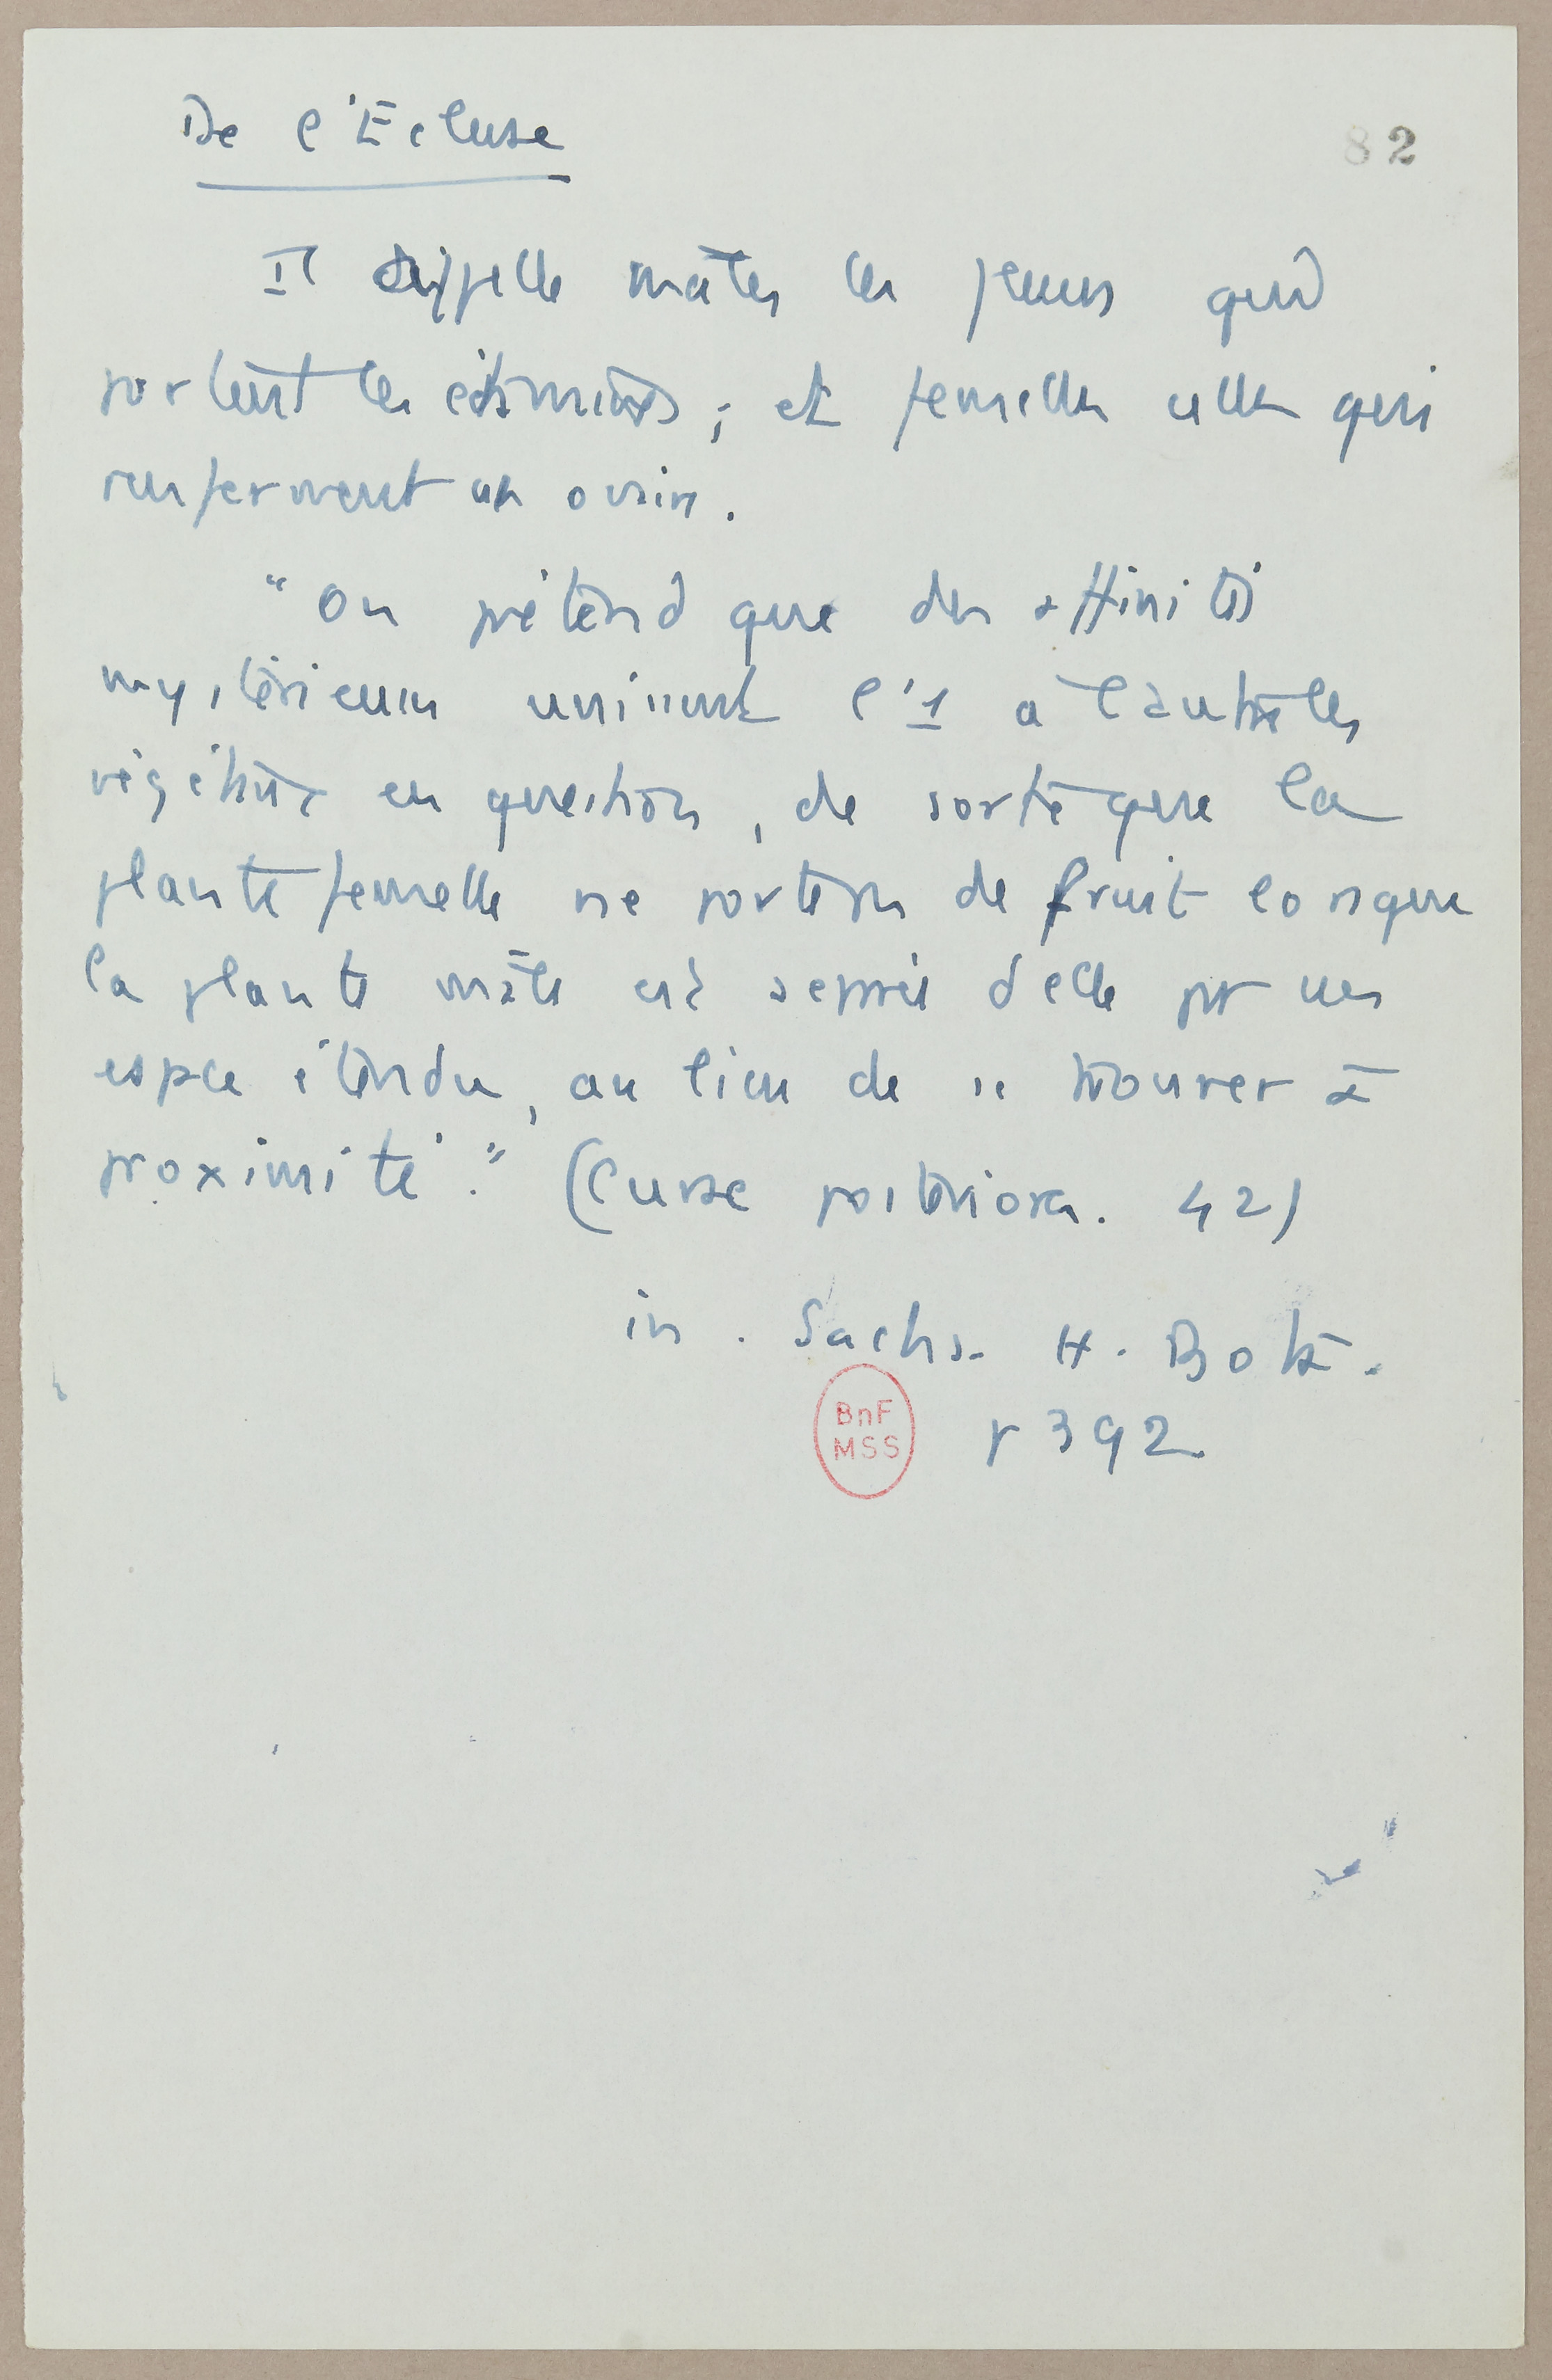 De l'Ecluse
82
Il appelle mâles les fleurs qui
portent les étamines ; et femelles celles qui
renferment un ovaire.
"On prétend que des affinités
mystérieuses unissent l'1 à l'autre les
végétaux en question, de sorte que la
plante femelle ne porte pas de fruit lorsque
la plante mâle est séparée d'elle par un
espace étendu, au lieu de se trouver à
proximité." (Curae posteriores. 42)
in. Sachs. H. Bota.
BnF
MSS
p 392